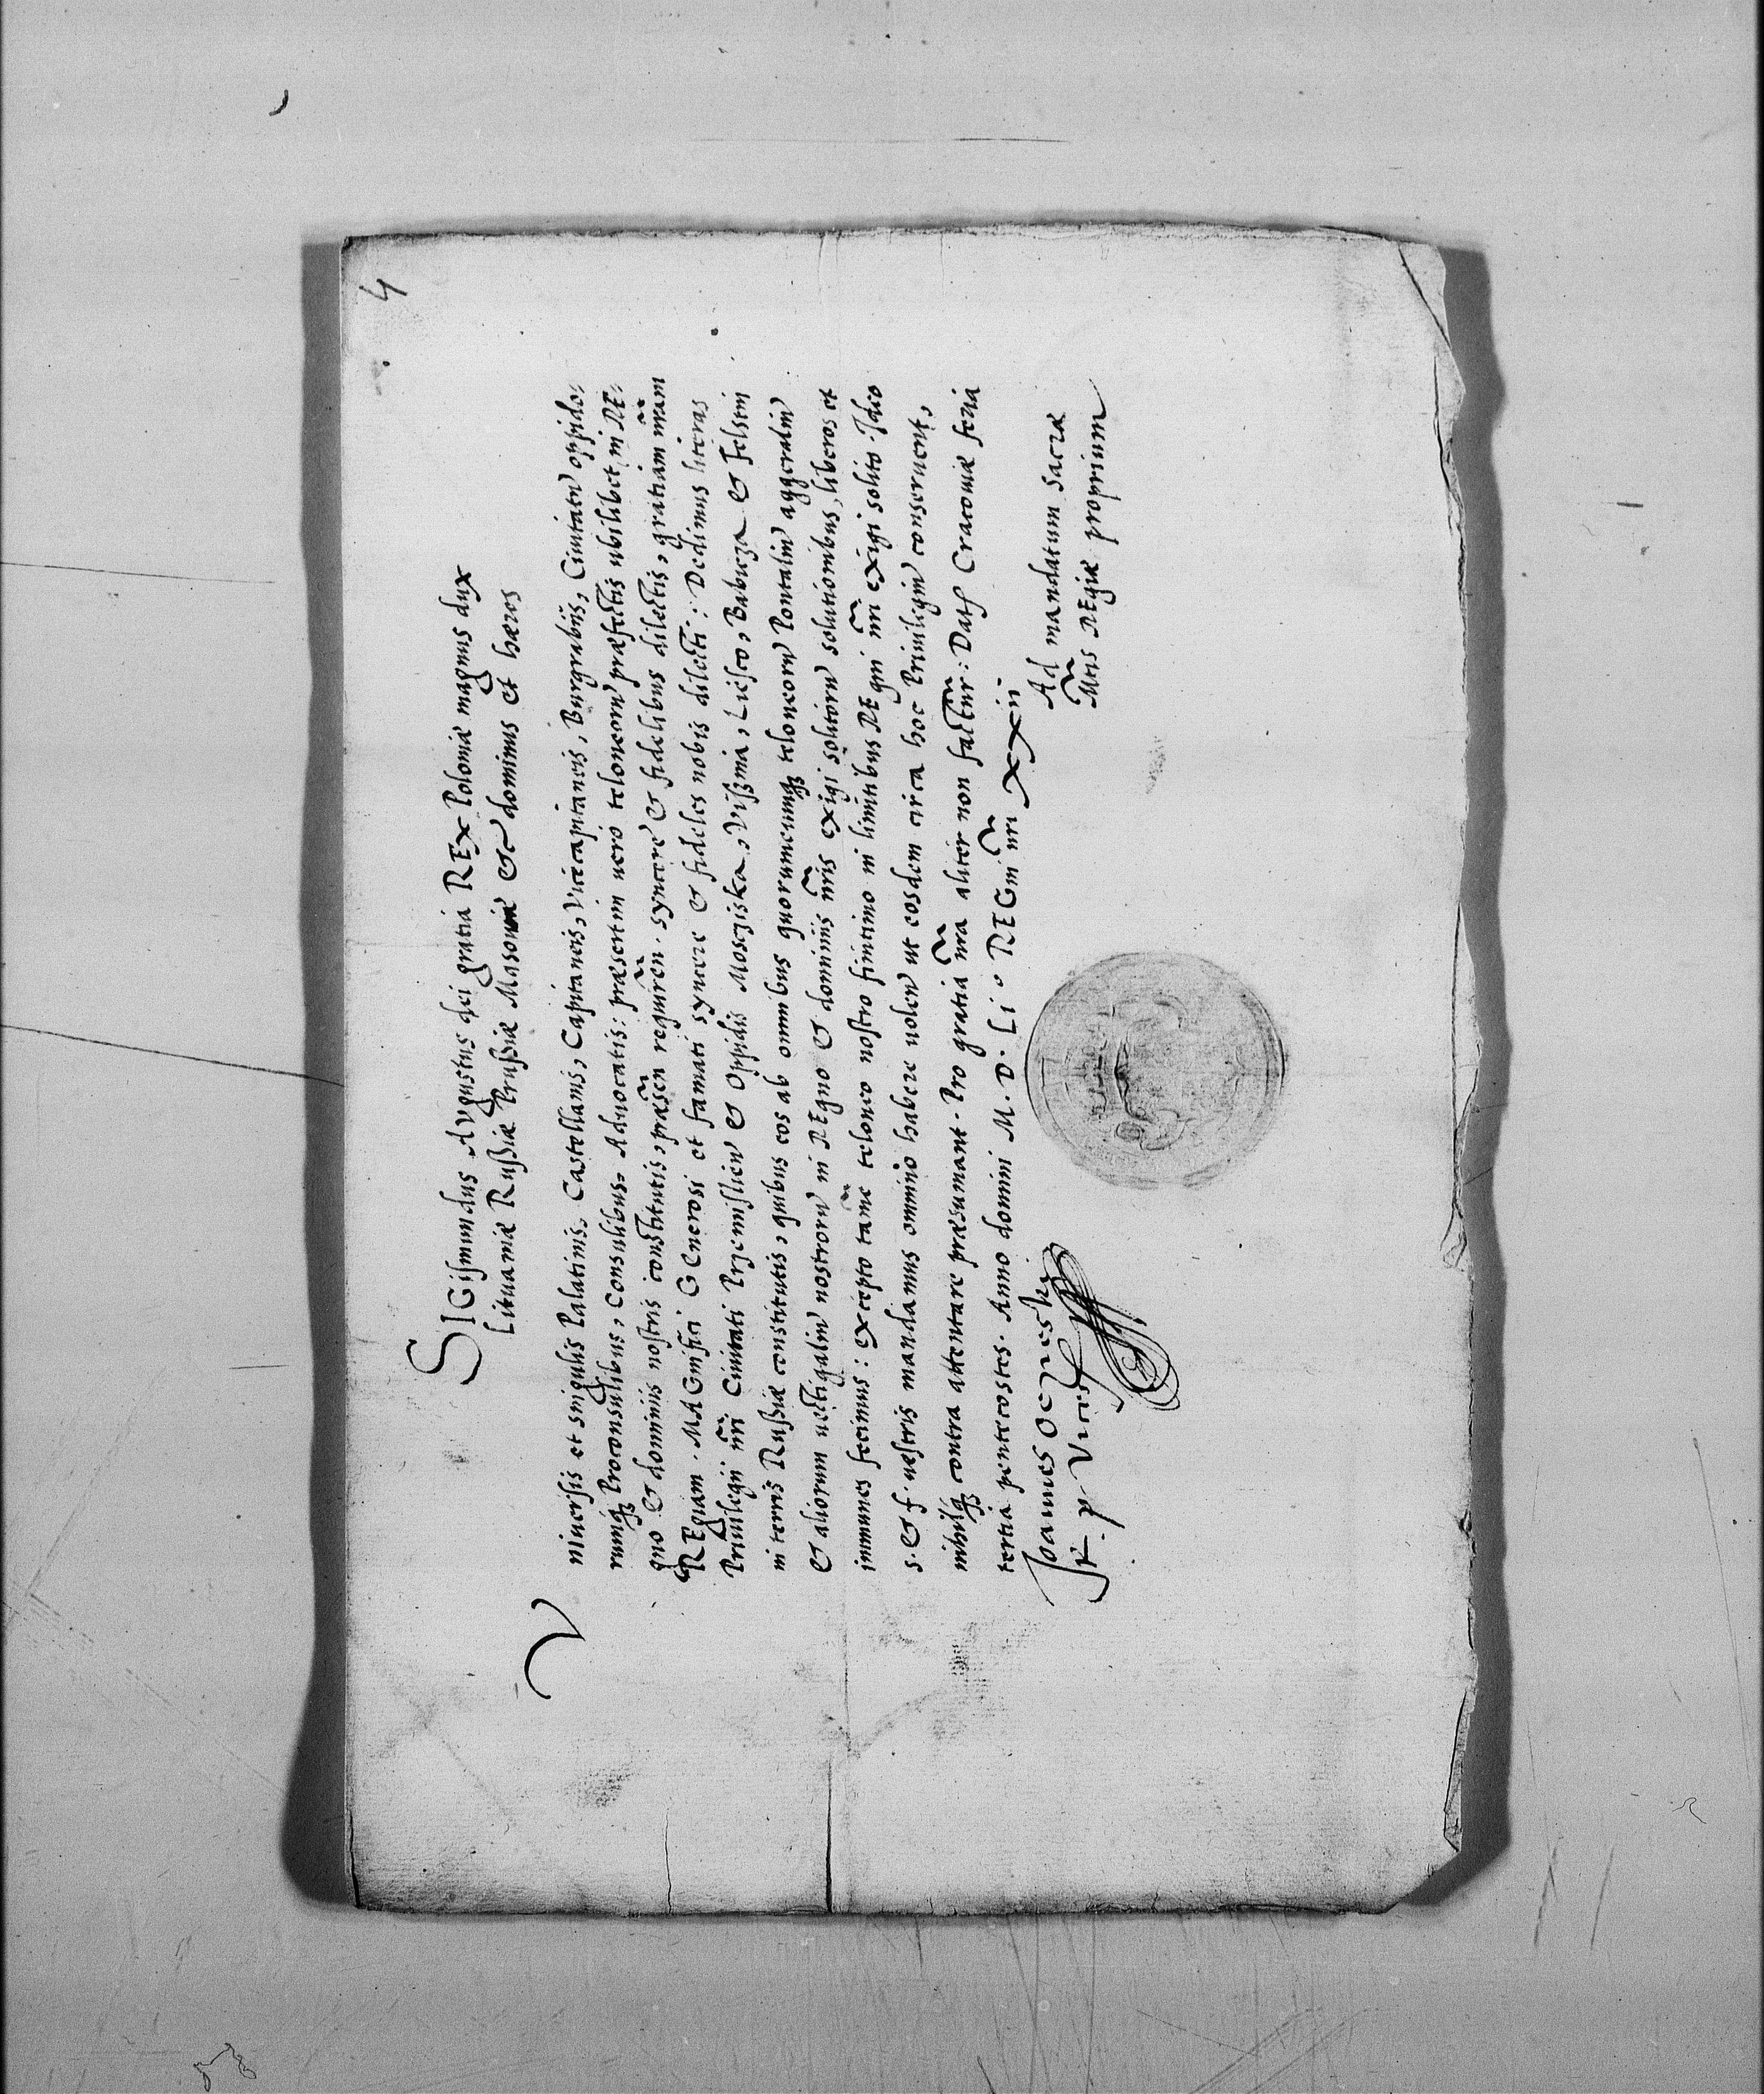 4
SIGismundus AVgustus dei gratia REx Poloniæ magnus dux
Lituaniæ Rußiæ Prußiæ Masoviæ &c dominus et hæres
Vniuersis et singulis Palatinis, Castellanis, Capitaneis, Vicecapitaneis, Burgrabiis, Ciuitatũ oppido-
rumq̃ Proconsulibus, Consulibus, Aduocatis: præsertim uero teloneorũ præfectis ubilibet in RE-
gno & dominiis nostris constitutis, præseñ requireñ. syncere & fidelibus dilectis, gratiam nr̃am
REgiam. MAGnifici GEnerosi et famati syncere & fideles nobis dilecti: Dedimus literas
Priuilegij nr̃i Ciuitati Przemislieñ & Oppidis Mosciska, Vißnia, Liesco, Babicza & Felstin
in terris Rußiæ constitutis, quibus eos ab omnibus quorumcumq̃ teloneorũ Pontaliũ aggeraliũ
& aliorum uectigaliũ nostrorũ in REgno & dominiis nr̃is exigi solitorũ solutionibus, liberos et
immunes fecimus: excepto tamẽ teloneo nostro finitimo in limitibus REgni nr̃i exigi solito. Ideo
s. & f. uestris mandamus omnino habere uoleñ ut eosdem circa hoc Priuilegiũ conseruent,
nihilq̃ contra attentare præsumant. Pro gratia nr̃a aliter non factur̃: Dat Cracouiæ feria
tertia pentecostes. Anno domini M. D. Li. REGni nr̃i xxii
Ad mandatum Sacræ
Mt̃is REgiæ proprium
Joannes Ocieski
R. p. Vices